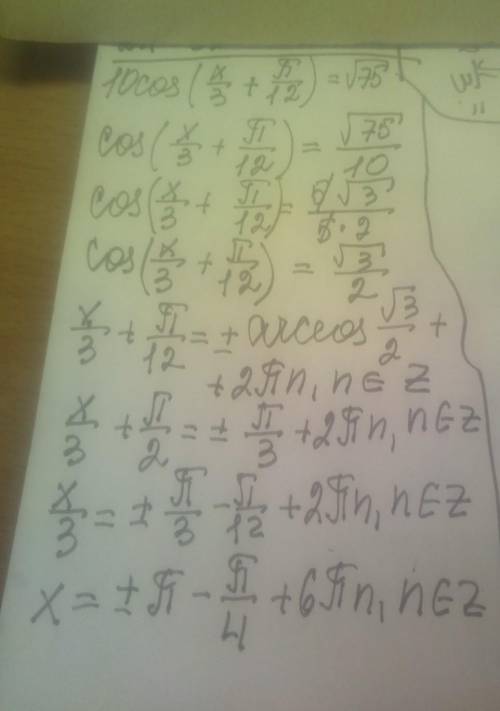 10cos(x/3 + π/12) = √75
cos(x/3 + π/12) = √75/10
cos(x/3 + π/12) = 5√3/5·2
cos(x/3 + π/12) = √3/2
x/3 + π/12 = ± arccos √3/2 +
+2πn, n∈Z
x/3 + π/2 = ± π/3 + 2πn, n∈Z
x/3 = ± π/3 - π/12 + 2πn, n∈Z
x = ± π - π/4 + 6πn, n∈Z